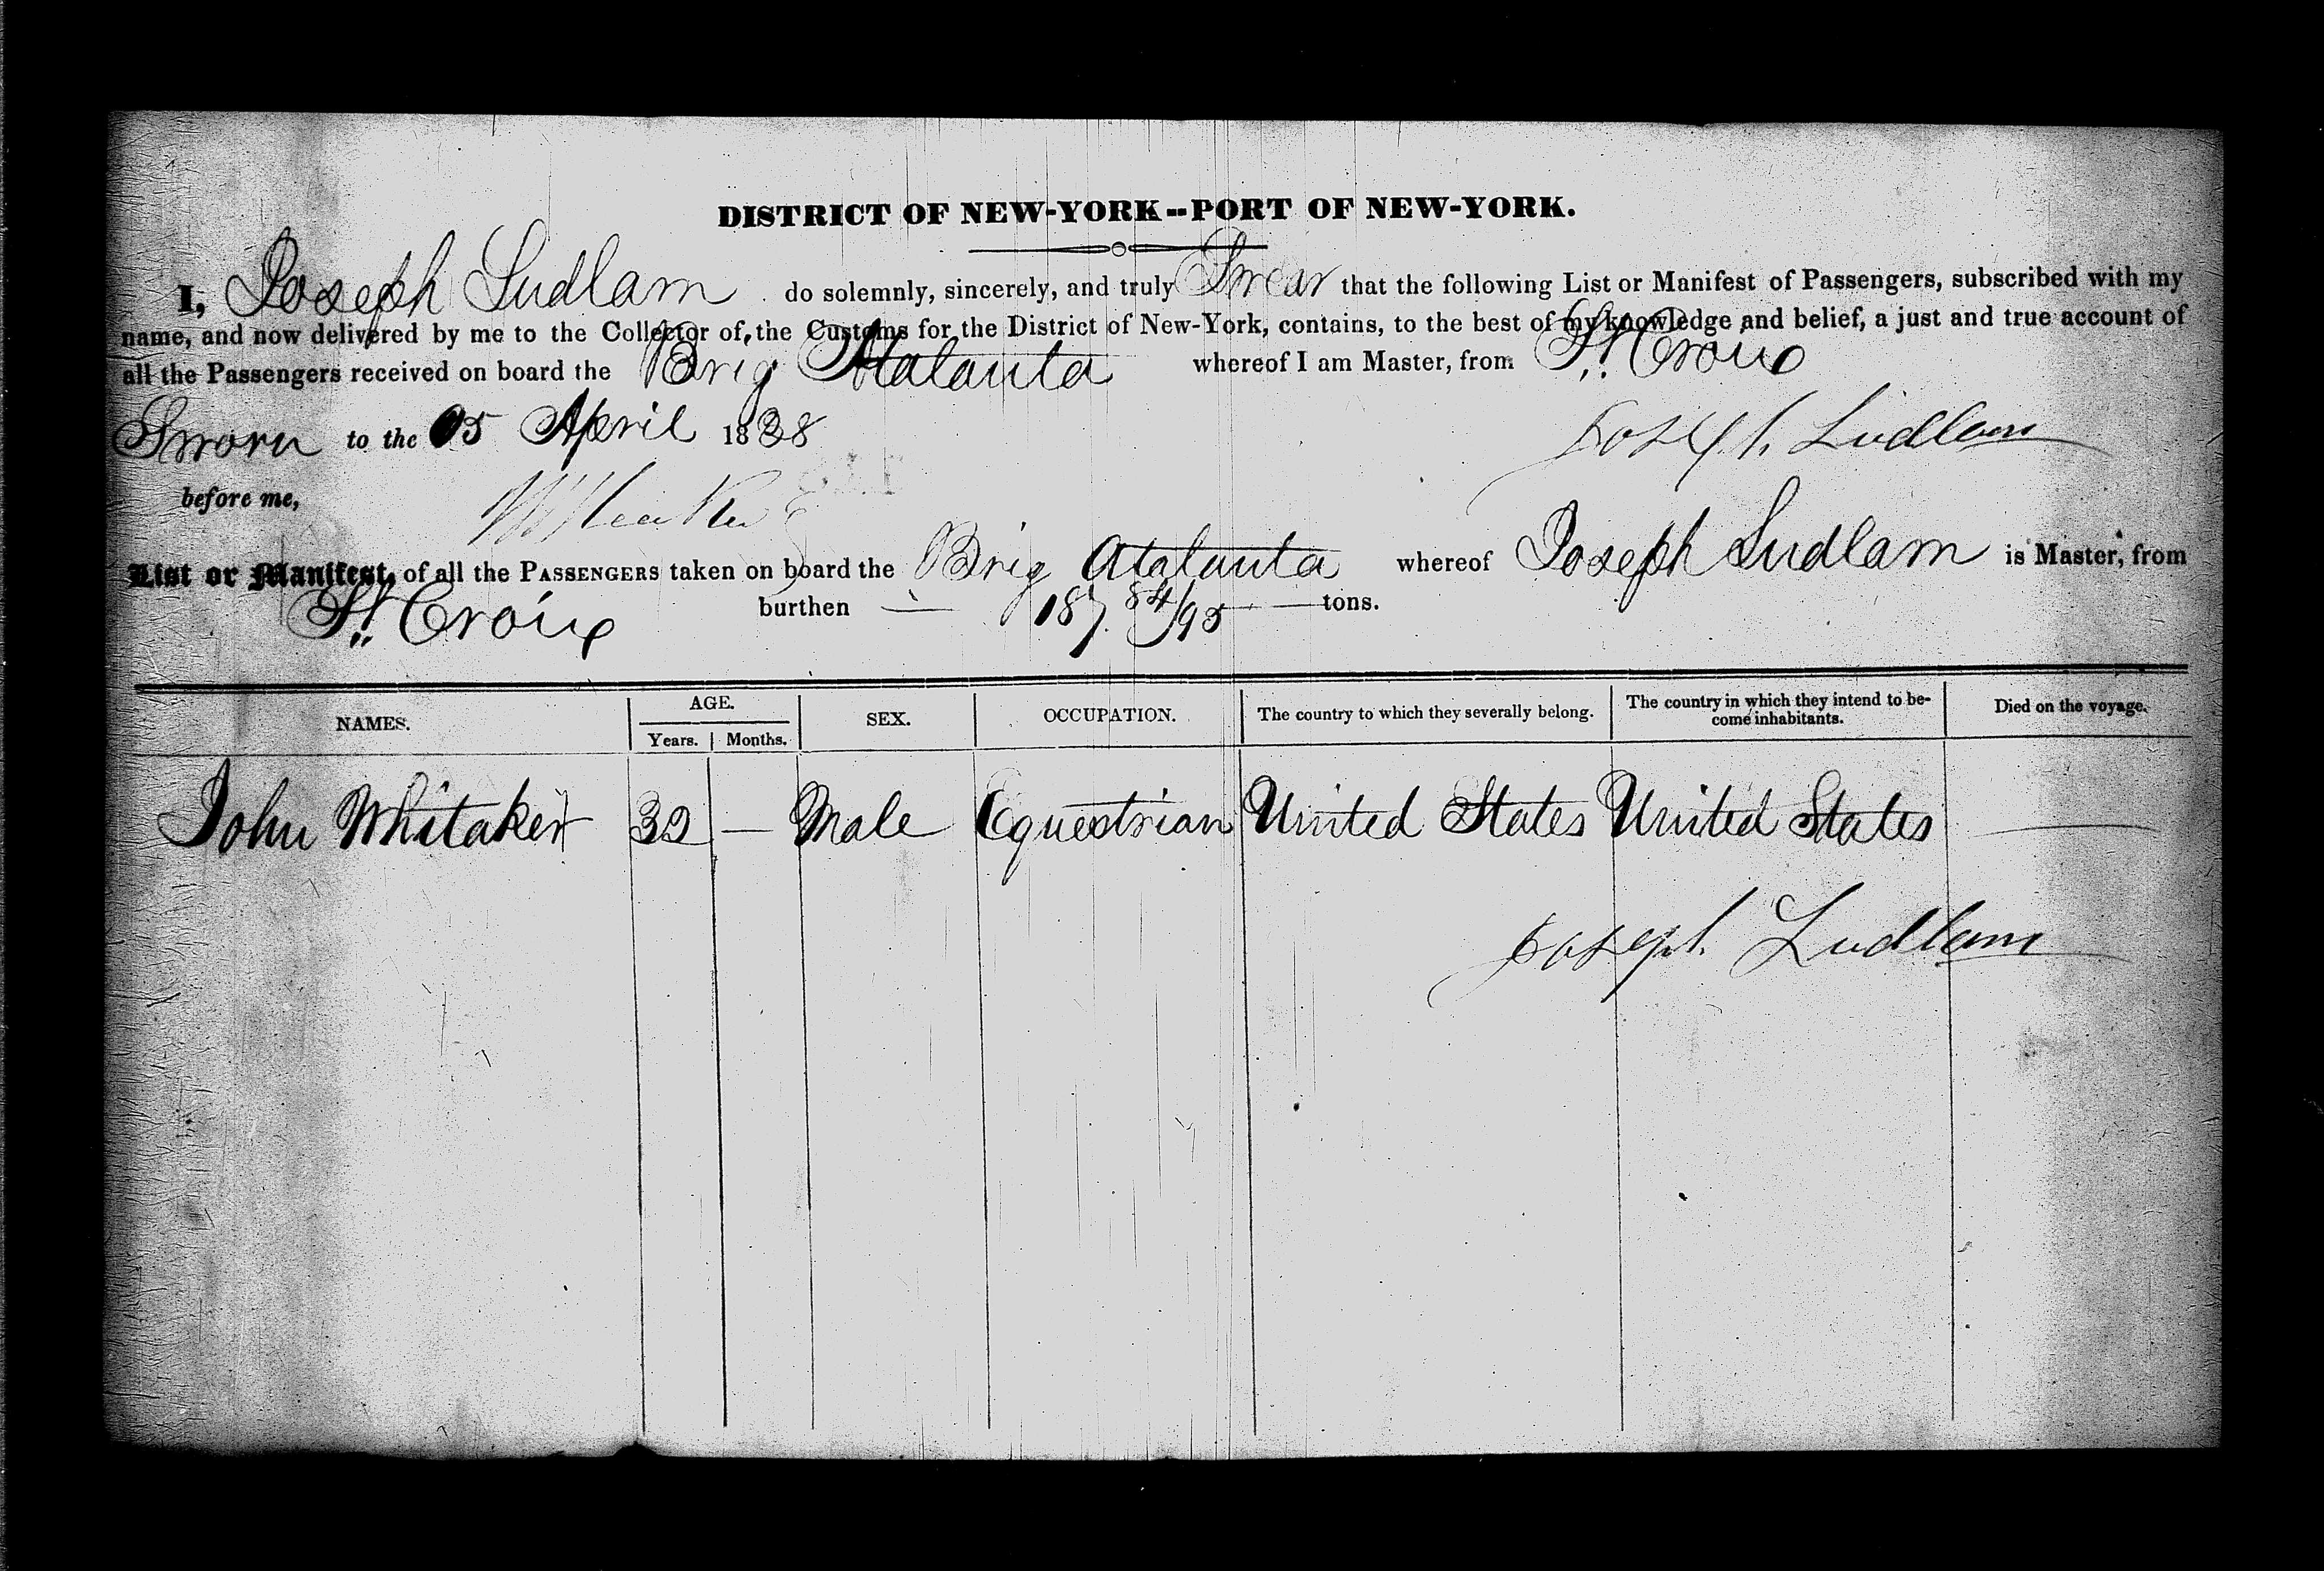 DISTRICT OF NEW-YORK--PORT OF NEW-YORK.
I, Joseph Ludlam do solemnly, sincerely, and truly Swear that the following List or Manifest of Passengers, subscribed with my
name, and now delivered by me to the Collector of the Customs for the District of New-York, contains, to the best of my knowledge and belief, a just and true account of
all the Passengers received on board the Brig Atalanta whereof I am Master, from St. Croix
Sworn to the 05 April 1838 Joseph Ludlam
before me,
List or Manifest, of all the PASSENGERS taken on board the Brig Atalanta whereof Joseph Ludlam is Master, from
St. Croix burthen — 187 84/95 — tons.
NAMES. AGE. SEX. OCCUPATION. The country to which they severally belong. The country in which they intend to be-
come inhabitants. Died on the voyage.
Years. Months.
John Whitaker 32 — Male Equestrian United States United States —
Joseph Ludlam